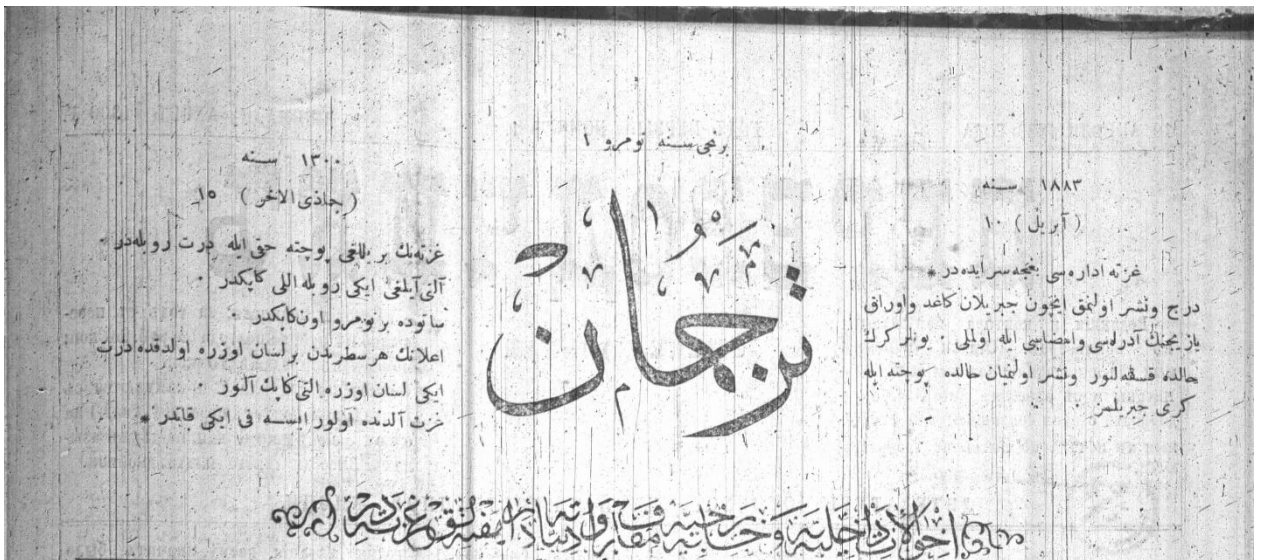 برنجى سنه نومرو ١
١٨٨٣ سنه
( آبريل ) ١٠
غزته اداره‌سى بغچه‌سرايده‌در *
درج ونشر اولنمق ايچون جبريلان كاغد واوراق
يازيجينڭ آدره‌سى وامضاسى ايله اولملى ٠ يونلر كرك
حالده قسقه‌لنور ونشر اولنميان حالده پوچته ايله
كرى جبريلمز ٠
ترجمان
١٣٠٠ سنه
( جماذى الاخر ) ١٥
غزته‌نك بر يللغى پوچته حقى ايله درت روبله‌در ٠
آلتى آيلغى ايكى روبله اللى كاپكدر ٠
ساتوده بر نومرو اون كاپكدر ٠
اعلانك هر سطرندن بر لسان اوزره اولدقده درت
ايكى لسان اوزره التى كاپك آلنور ٠
غزت آلدنده اولور ايسه فى ايكى قاتدر *
احوالات داخليه وخارجيه